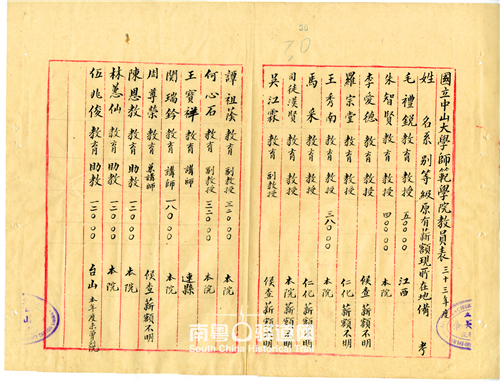 50
70
國立中山大學師範學院教員表 三十三年度
姓名 系別 等級 原有薪額 現所在地 備考
毛禮銳 教育 教授 五〇〇〇〇 江西
朱智賢 教育 教授 四〇〇〇〇 本院
李愛德 教育 教授 候查薪額不明
羅宗堂 教育 教授 仁化 薪額不明
王秀南 教育 教授 三八〇〇〇 本院
馬采 教育 教授 仁化 薪額不明
司徒漢賢 教育 教授 本院 薪額不明
吳江霖 教育 副教授 候查薪額不明
譚祖蔭 教育 副教授 三二〇〇〇 本院
何心石 教育 副教授 三二〇〇〇 本院
王寶祥 教育 講師 連縣
関瑞鈐 教育 講師 一八〇〇〇 本院
周尊榮 教育 兼講師 候查薪額不明
陳恩教 教育 助教 一二〇〇〇 本院
林蕙仙 教育 助教 一二〇〇〇 本院
伍兆俊 教育 助教 一二〇〇〇 台山 本年度未筭院
南粤
South China Historical Trail